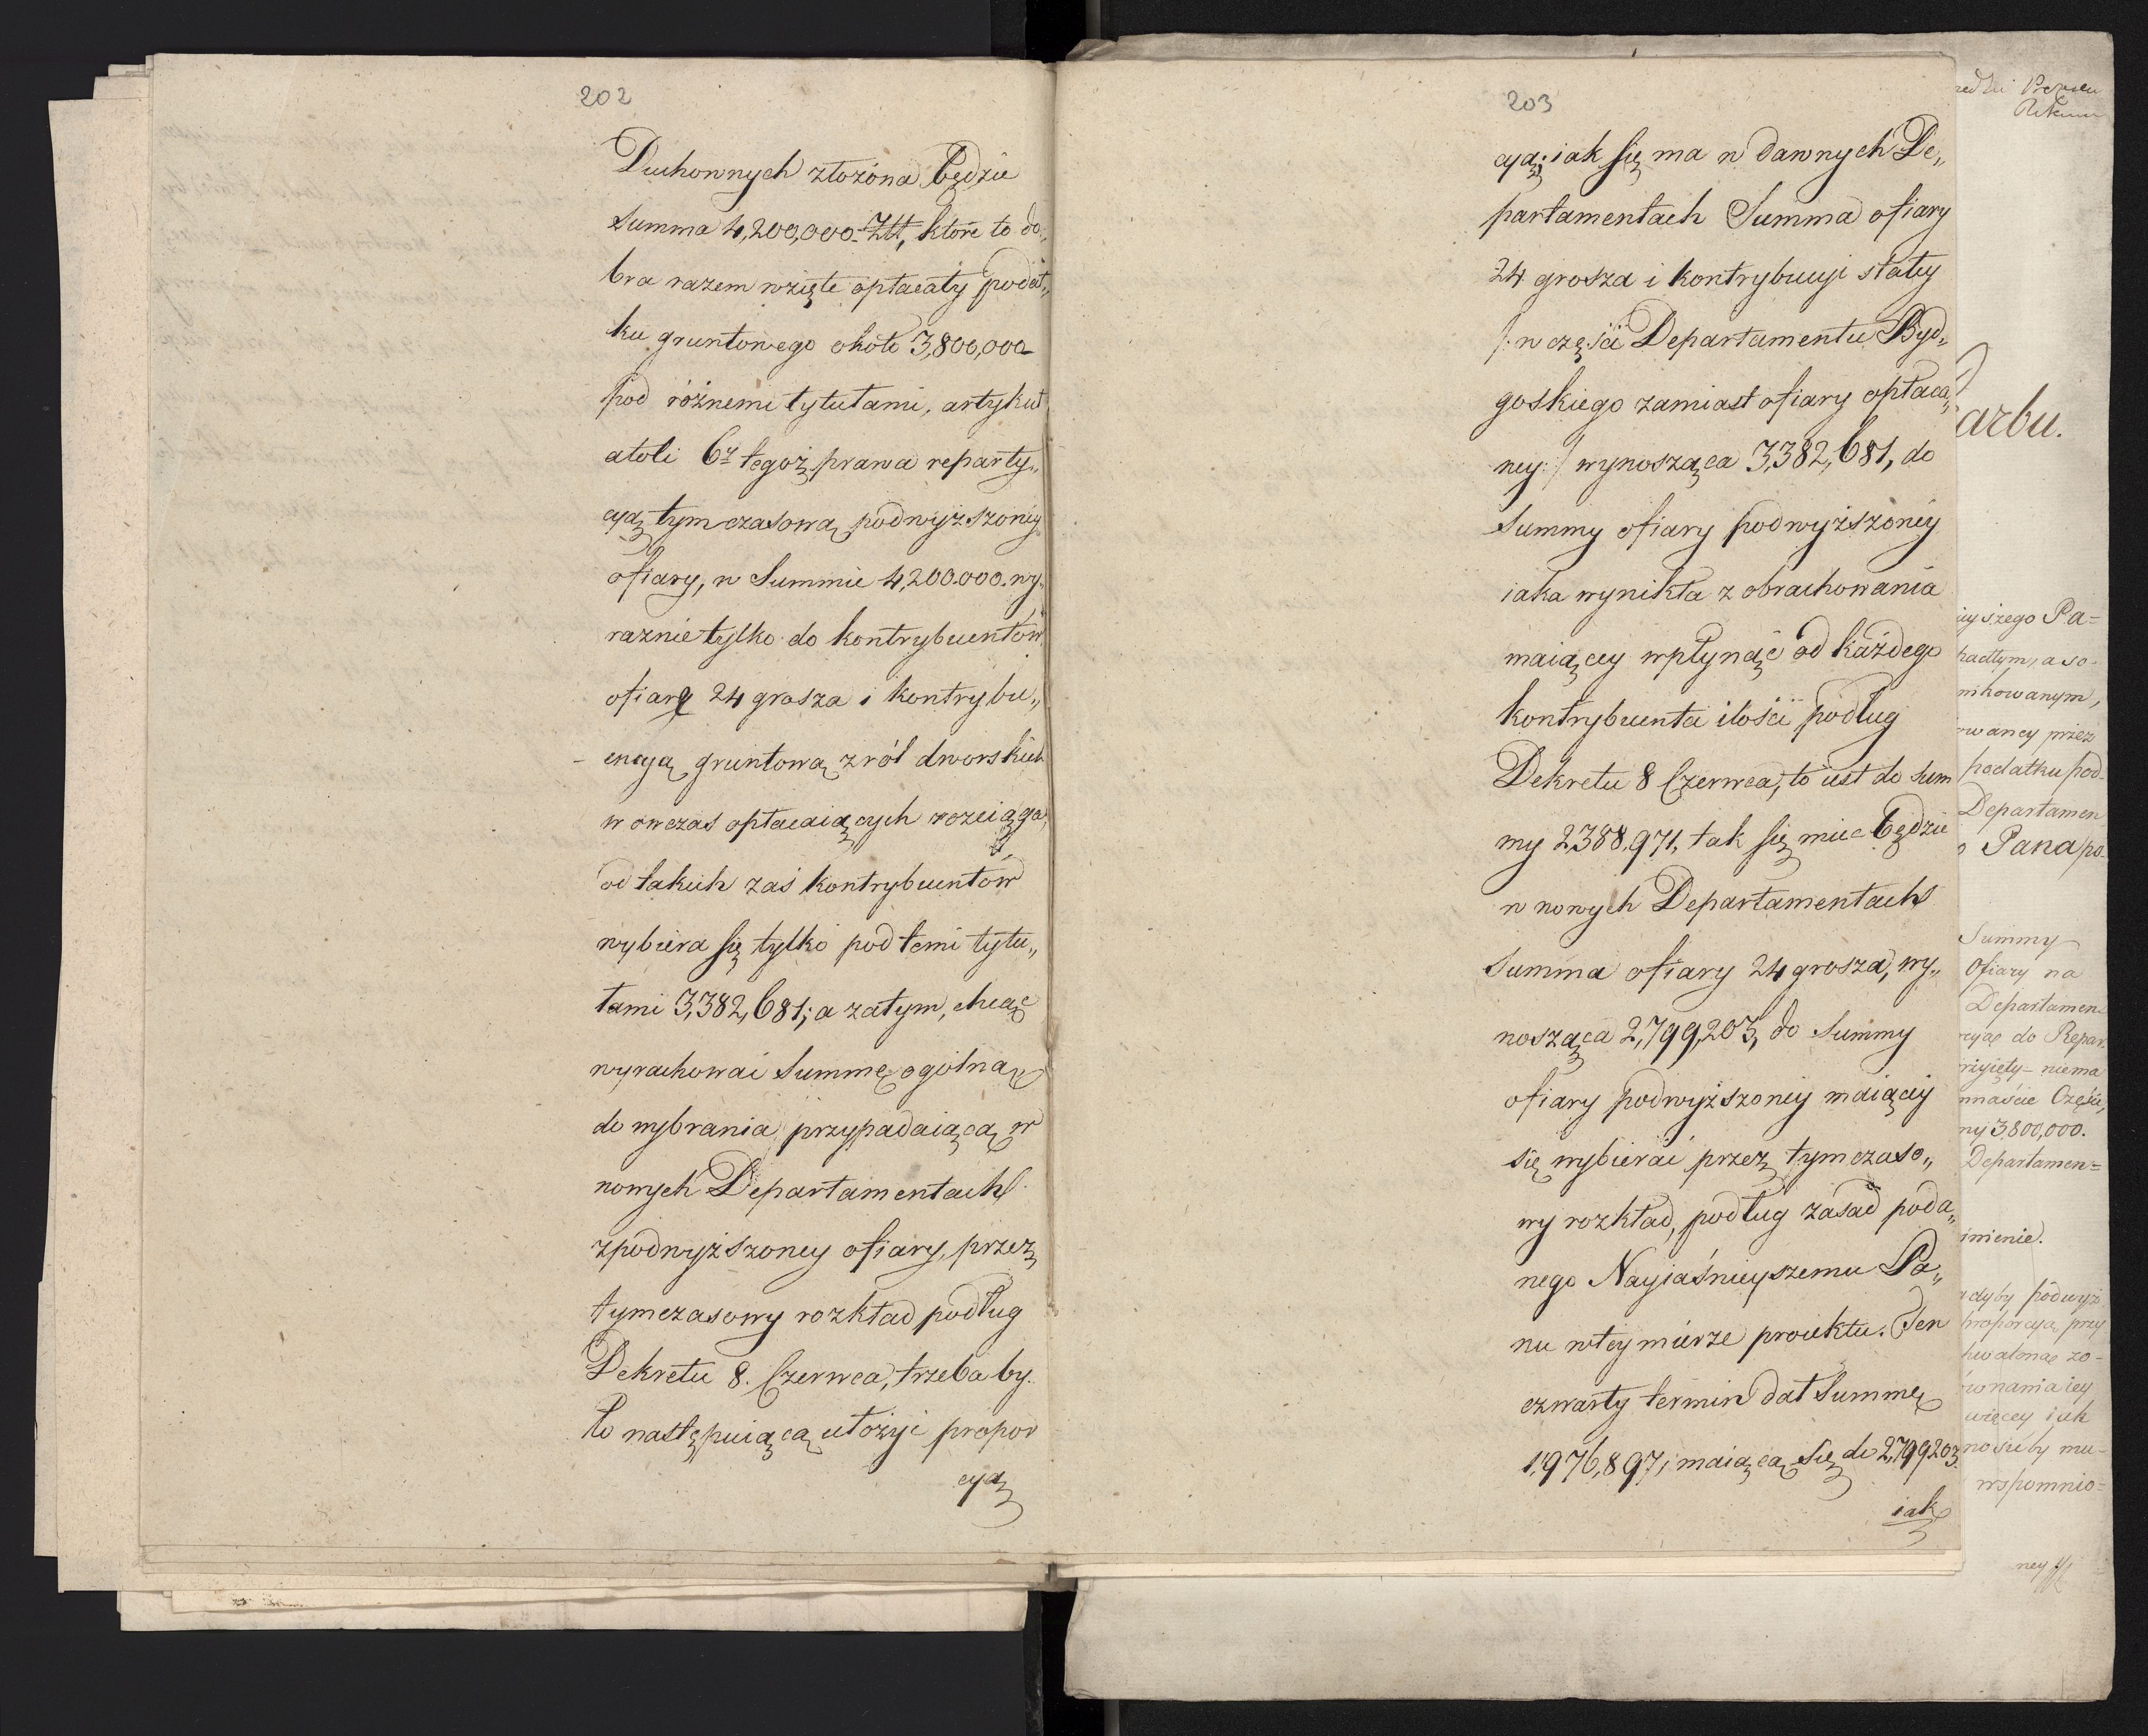 202
Duchownych złożona będzie
Summa 4,200,000 Złł, które to do„
bra razem wzięte opłacały podat„
ku gruntowego około 3,800,000
pod różnemi tytułami, artykuł
atoli 6ty tegoż prawa reparty„
cyą tymczasową podwyższoney
ofiary, w Summie 4,200.000. wy„
raznie tylko do kontrybuentów
ofiarę 24 grosza i kontrybu„
encyą gruntową z ról dworskich
w owczas opłacaiących rozciąga,
od takich zaś kontrybuentów
wybiera się tylko pod temi tytu„
łami 3,382,681; a zatym, chcąc
wyrachować Summę ogólną
do wybrania przypadaiącą w
nowych Departamentach
z podwyższoney ofiary, przez
tymczasowy rozkład podług
Dekretu 8. Czerwca, trzeba by„
ło następuiącą ułożyć propor
cyą
203
cyą: iak się ma w dawnych De„
partamentach Summa ofiary
24 grosza i kontrybucyi stałey
/: w części Departamentu Byd„
goskiego zamiast ofiary opłaca„
ney :/ wynosząca 3,382,681, do
Summy ofiary podwyższoney
iaka wynikła z obrachowania
maiącey wpłynąć od każdego
kontrybuenta ilości podług
Dekretu 8 Czerwca, to iest do Sum
my 2,388,971, tak się mieć będzie
w nowych Departamentach
Summa ofiary 24 grosza, wy„
nosząca 2,799,203, do Summy
ofiary podwyższoney maiącey
się wybierać przez tymczaso„
wy rozkład, podług zasad poda„
nego Nayiaśnieyszemu Pa„
nu w tey mierze proiektu. Ten
czwarty termin dał Summę
1,976,897, maiącą się do 2,799203.
iak
arbu.
yszego Pa=
nikowanym,
waney przez
podatku pod-
Departamen
Pana po-
Summy
Ofiary na
Departamen
do Repar.
niema
Części,
ny 3,800,000.
Departamen=
mienie.
gdyby podwyż
proporcya przy
równania iey
więcey iak
nosiły mu-
wspomnio=
ney